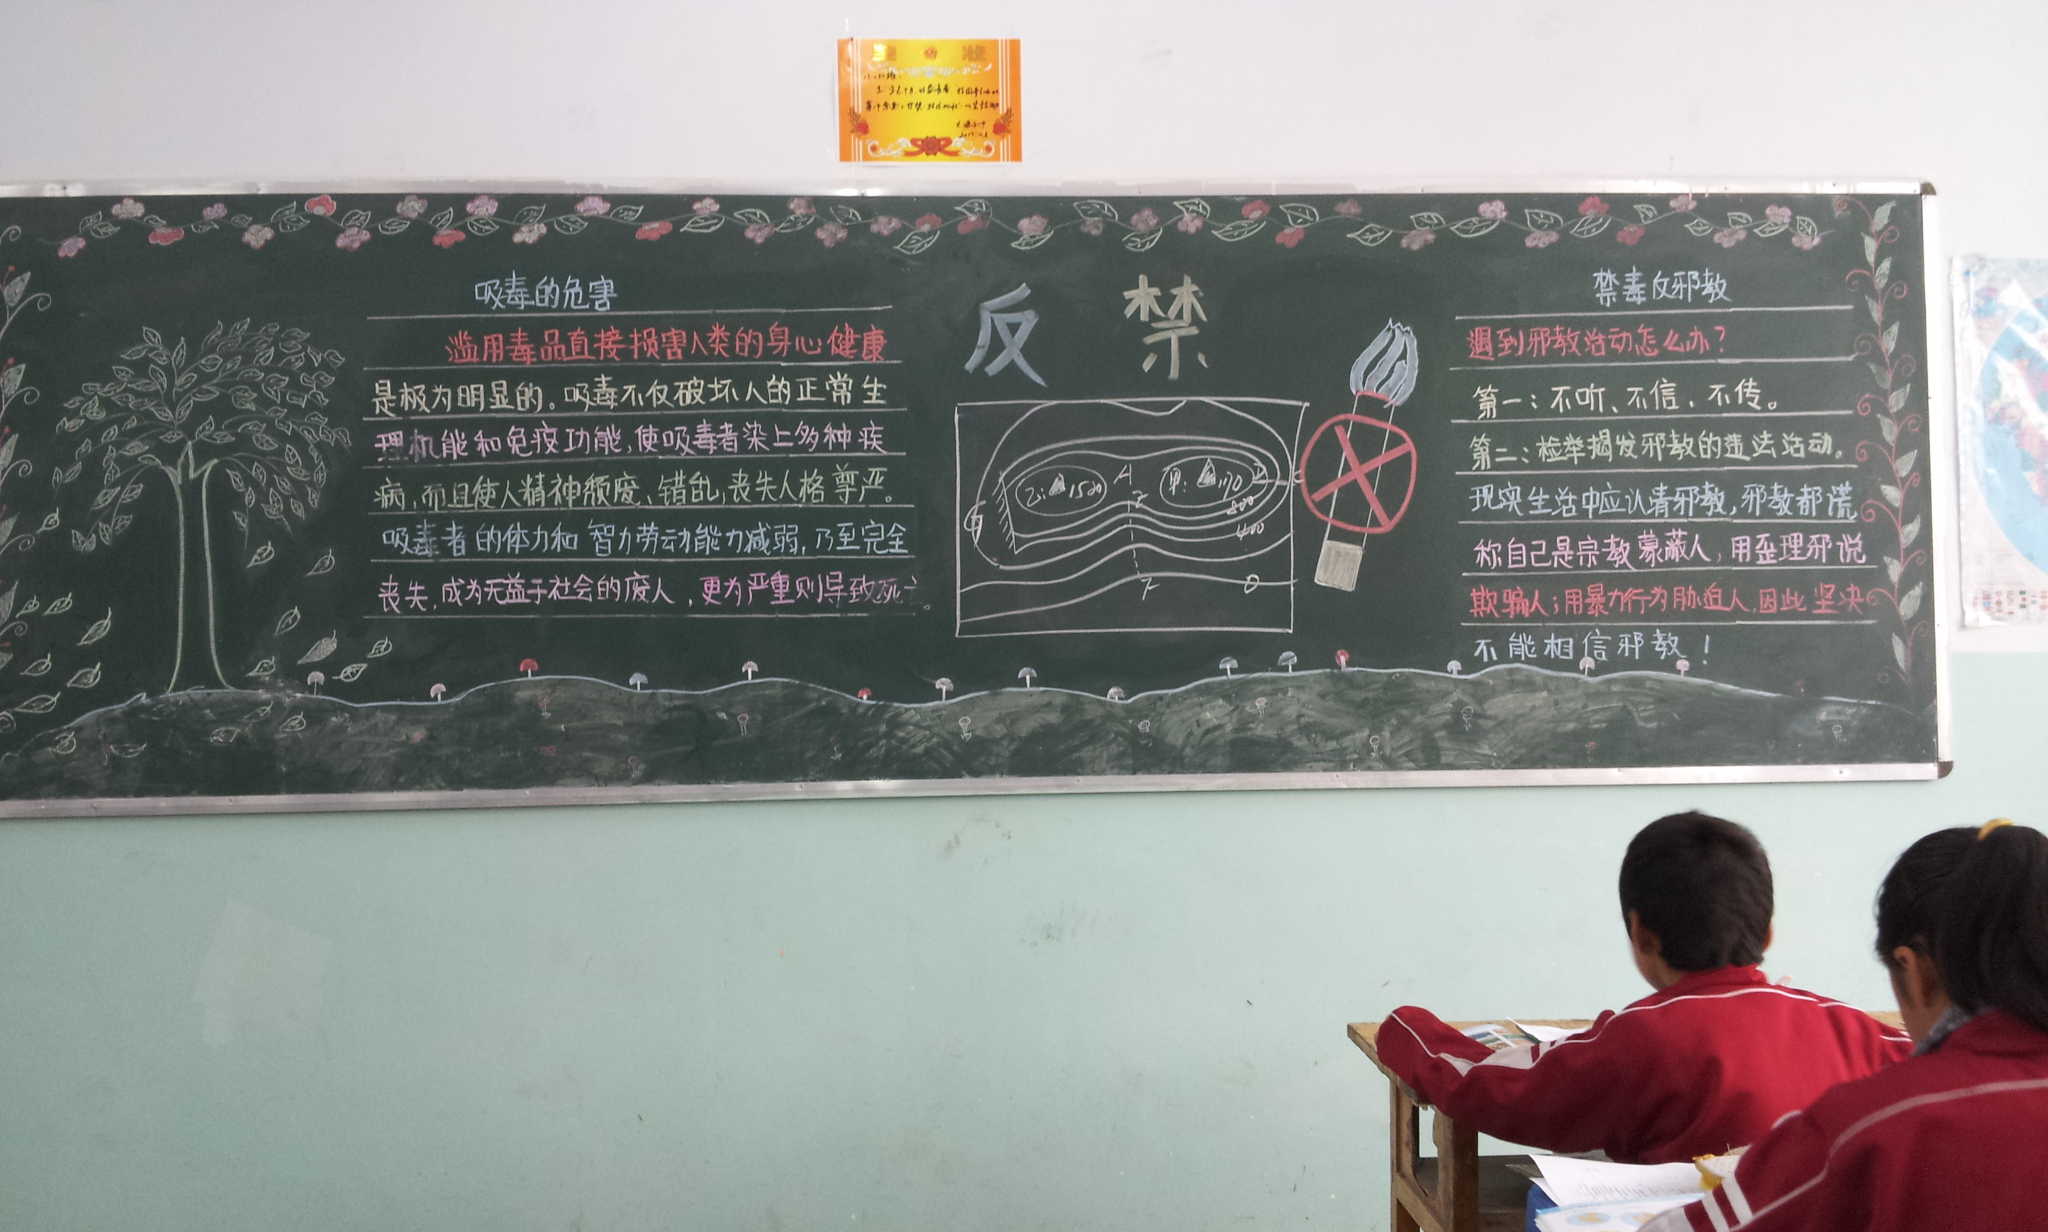 吸毒的危害
滥用毒品直接损害人类的身心健康
是极为明显的。吸毒不仅破坏人的正常生
理机能和免疫功能,使吸毒者染上多种疾
病,而且使人精神颓废、错乱,丧失人格尊严。
吸毒者的体力和智力劳动能力减弱,乃至完全
丧失,成为无益于社会的废人,更为严重则导致死亡。
反 禁
乙:▲1520
A
甲:
500
400
0
禁毒反邪教
遇到邪教活动怎么办?
第一:不听、不信、不传。
第二:检举揭发邪教的违法活动。
现实生活中应认清邪教,邪教都谎
称自己是宗教蒙藏人,用歪理邪说
欺骗人;用暴力行为胁迫人,因此坚决
不能相信邪教!